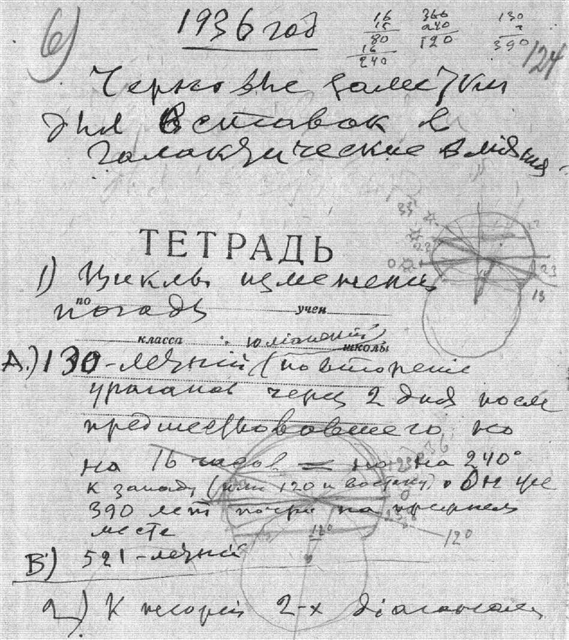 6)
1936 год
16
15
80
16
240
366
240
120
130
3
390
124
Черновые заметки
для вставок в
галактические влияния
ТЕТРАДЬ
1) Циклы изменений
по погоды учен
класса школы
А.) 130-летний (повторение
ураганов через 2 дня после
предшествовавшего но
на 16 часов = но на 240°
к западу (или 120 к востоку) . Он уже
390 лет почти на прежнем
месте
В) 521-летний
2) К теории 2-х диагоналей
0
23
13
0
12°